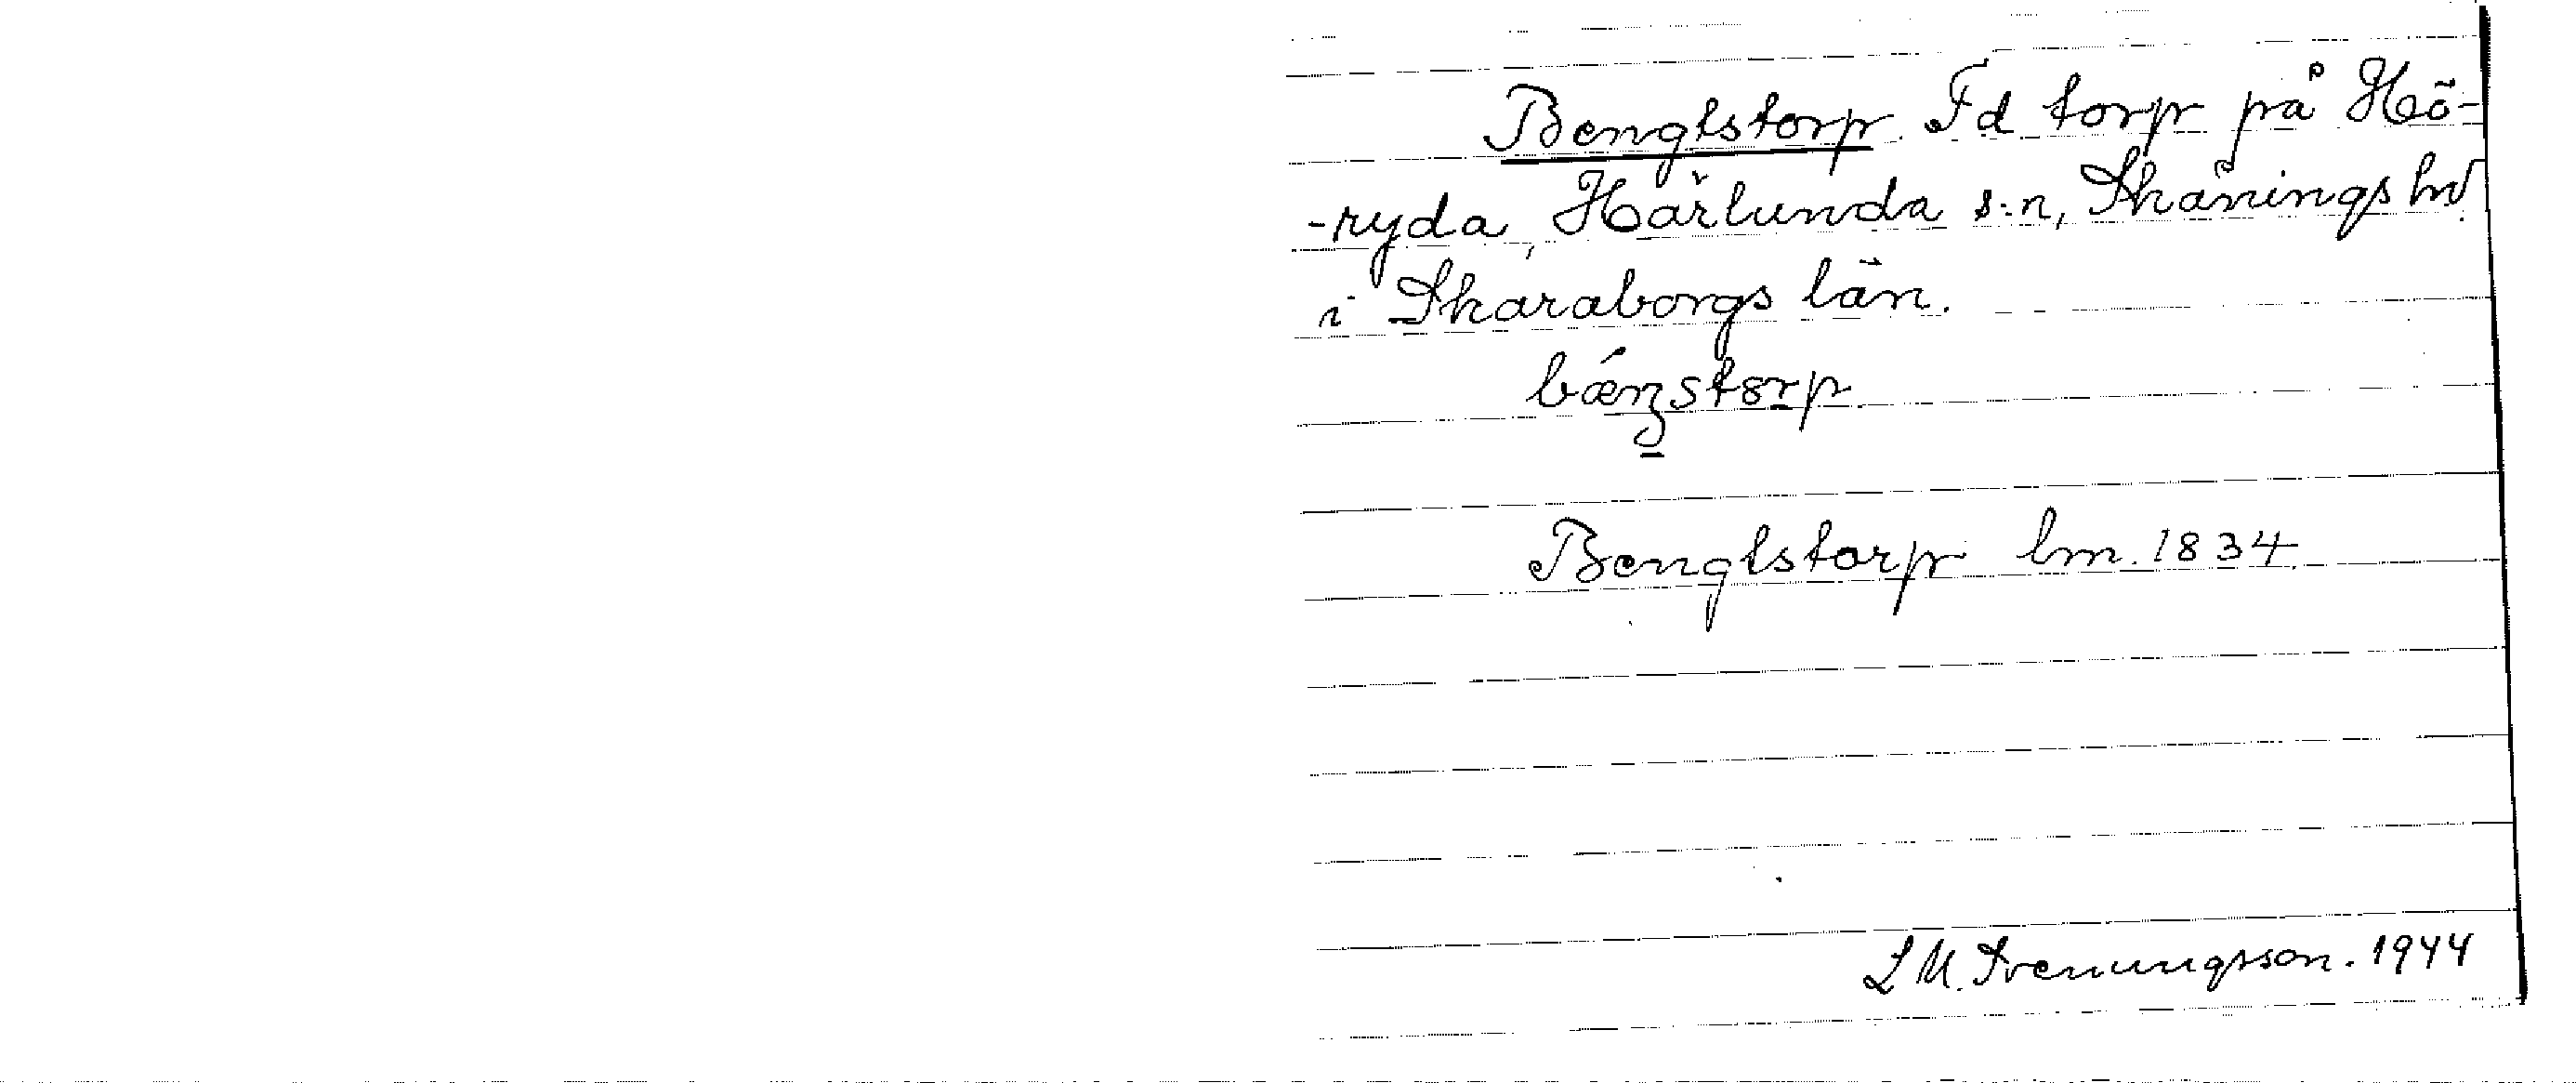 Bengtstorp. Fd torp på Hö-
-ryda, Härlunda s:n, Skånings hd
i Skaraborgs län.
Bengtstorp lm. 1834.
S M. Svenungsson. 1944